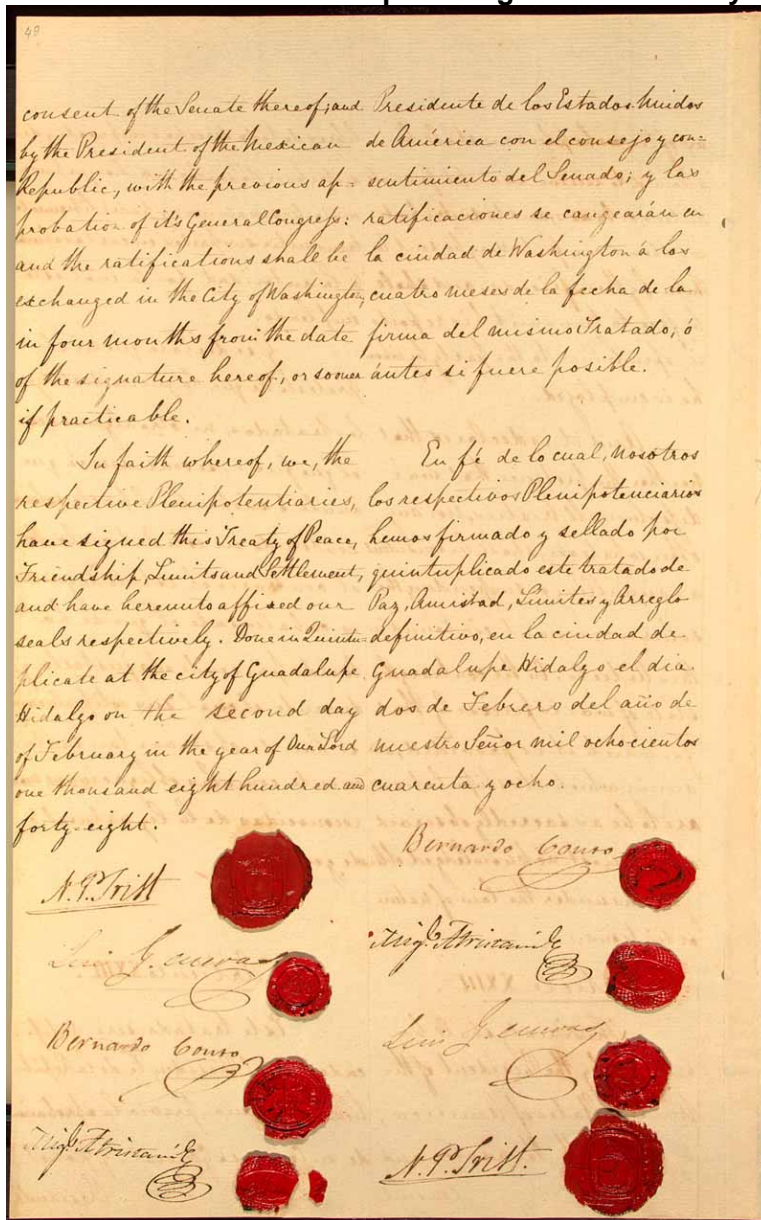 49
consent of the Senate thereof; and
by the President of the Mexican
Republic, with the previous ap=
probation of it's General Congress:
and the ratifications shall be
exchanged in the City of Washington,
in four months from the date
of the signature hereof, or sooner
if practicable.
In faith whereof, we, the
respective Plenipotentiaries,
have signed this Treaty of Peace,
Friendship, Limits and Settlement,
and have hereunto affixed our
seals respectively. Done in Quintu=
plicate at the city of Guadalupe
Hidalgo on the second day
of February in the year of Our Lord
one thousand eight hundred and
forty-eight.
N. P. Trist
Luis G. Cuevas
Bernardo Couto
Migl. Atristain
Presidente de los Estados Unidos
de América con el consejo y con=
sentimiento del Senado; y las
ratificaciones se cangearán en
la ciudad de Washington á los
cuatro meses de la fecha de la
firma del mismo Tratado, ó
ántes si fuere posible.
En fé de lo cual, nosotros
los respectivos Plenipotenciarios
hemos firmado y sellado por
quintuplicado este tratado de
Paz, Amistad, Límites y Arreglo
definitivo, en la ciudad de
Guadalupe Hidalgo el dia
dos de Febrero del año de
nuestro Señor mil ochocientos
cuarenta y ocho.
Bernardo Couto
Migl. Atristain
Luis G. Cuevas
N. P. Trist.